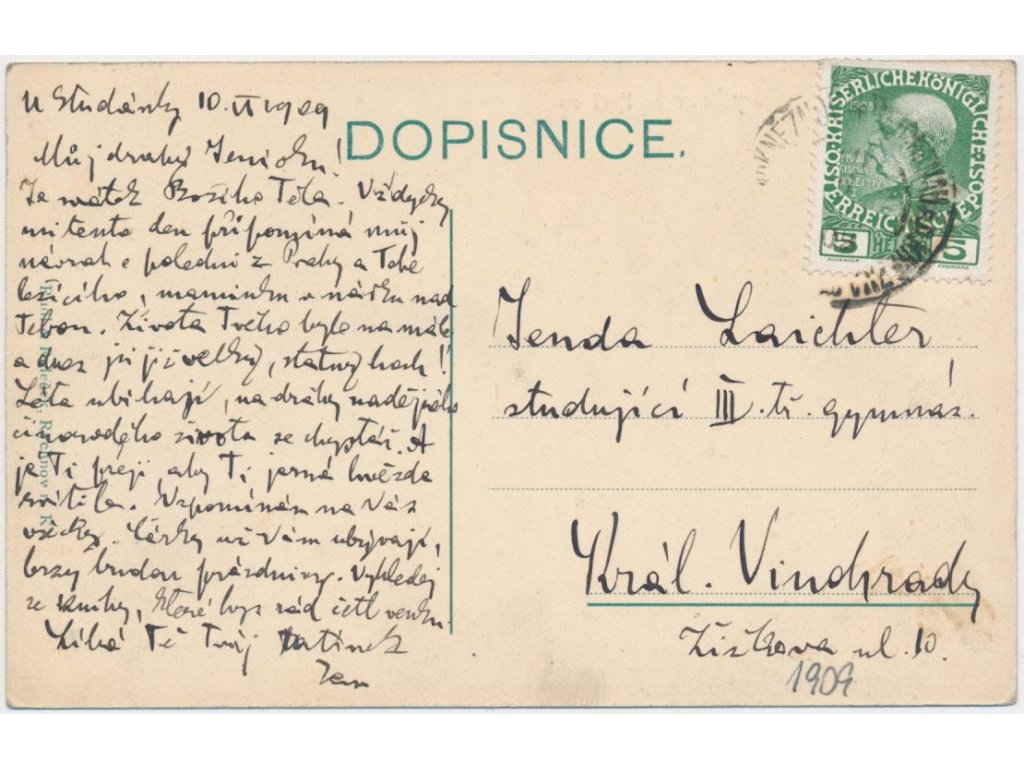 U Studánky 10. VI 1909
Můj drahý Jeníčku!
Je svátek Božího Těla. Vždycky
mi tento den připomíná můj
návrat v poledni z Prahy a Tebe
ležícího, maminku v nářku nad
Tebou. Života Tvého bylo na mále
a dnes jsi již velký, statný hoch!
Léta ubíhají, na dráhy nadějného
života se chystáš. A
já Ti přeji, aby Ti jasná hvězda
svítila. Vzpomínám na Vás
všecky. Čárky už Vám ubývají,
brzy budou prázdniny. Vyhledej
se knihy, které bys rád četl venku.
Líbá Tě Tvůj tatínek
Jan
DOPISNICE.
KAISERLICHE KÖNIGLICHE
ÖSTERREICHISCHE POST
1908
5 HELLER 5
Jenda Laichter
studující III. tř. gymnas.
Král. Vinohrady
Žižkova ul. 10.
1909
Rychnov n. K.